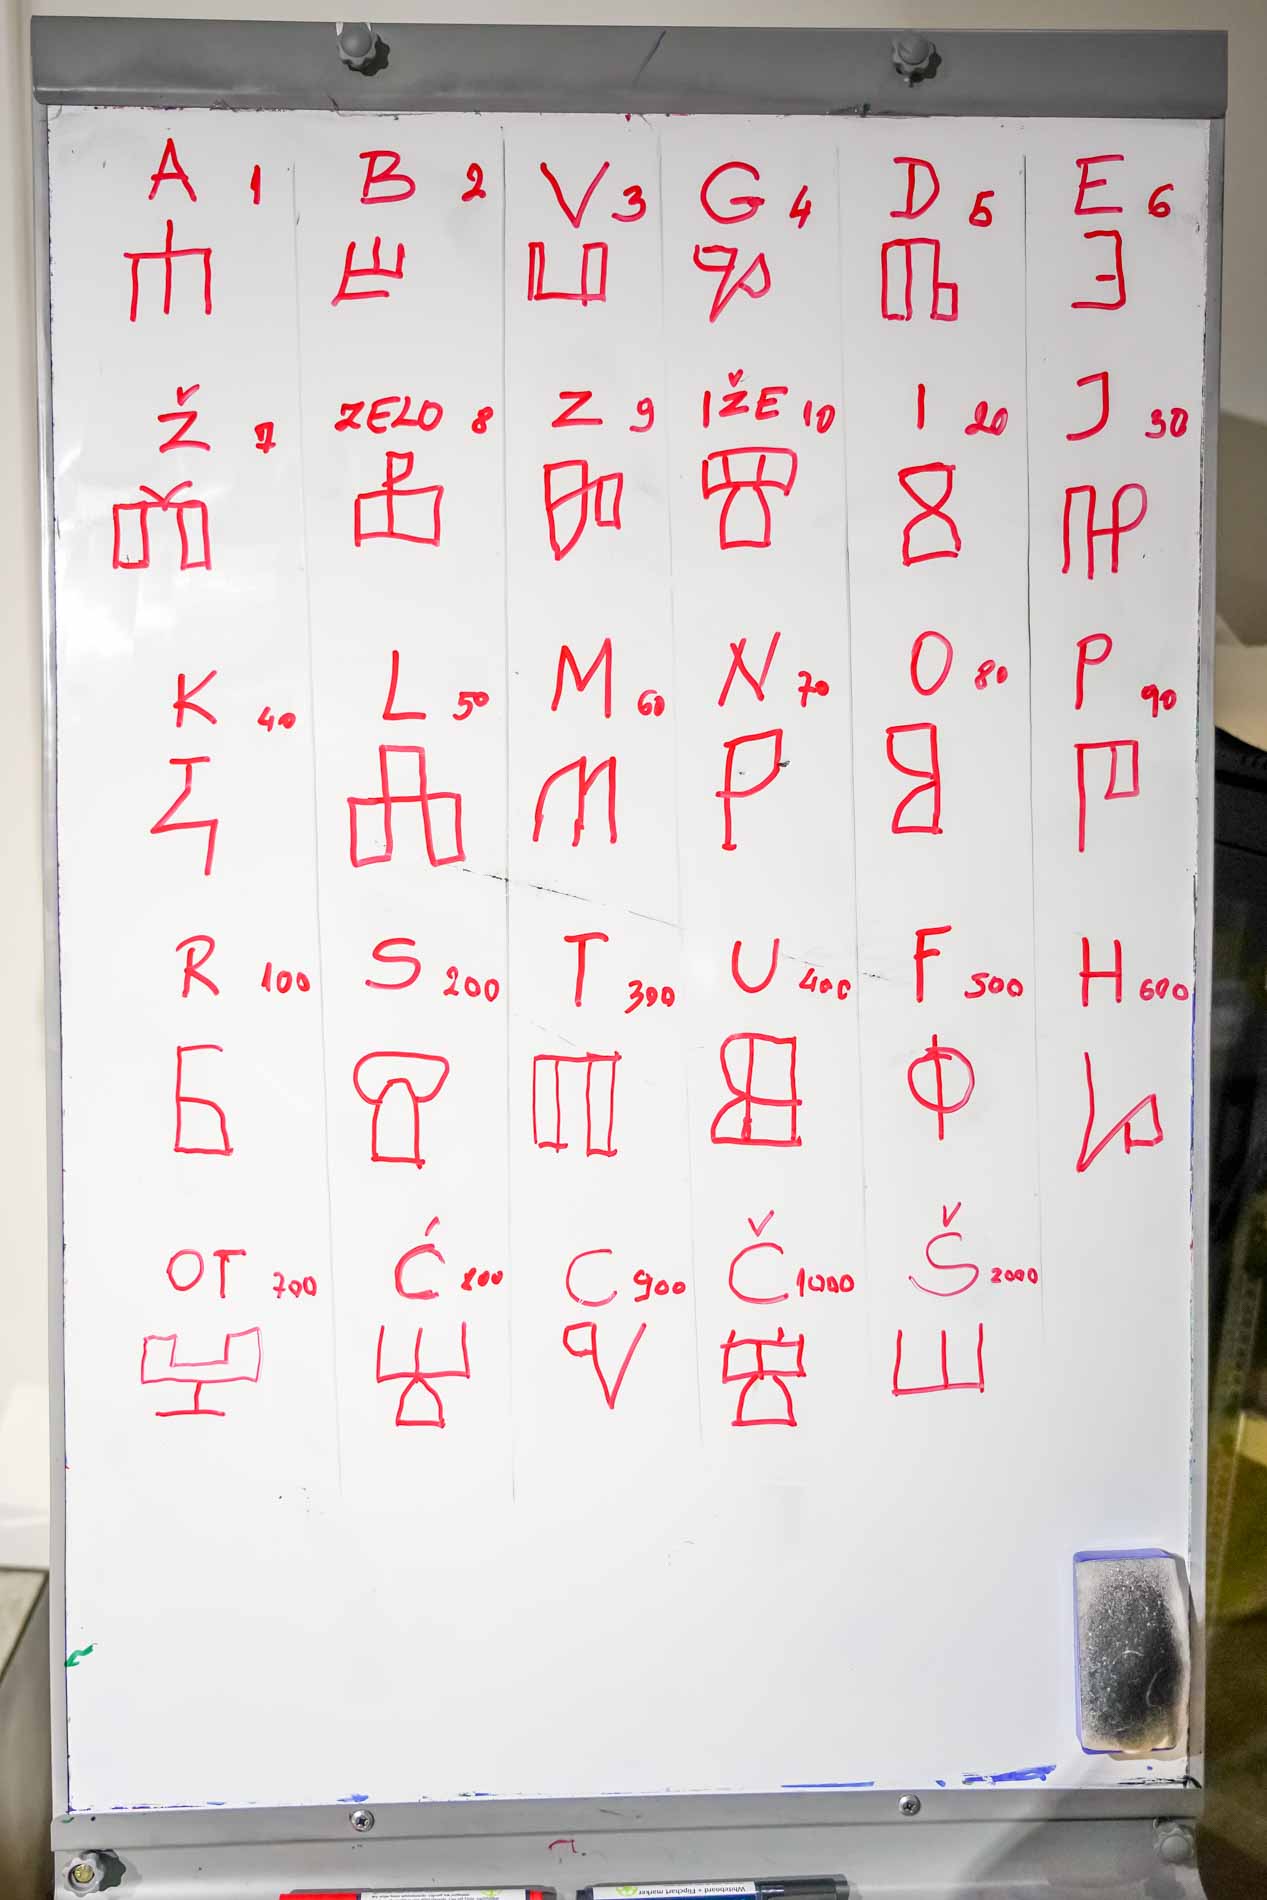 A 1 B 2 V 3 G 4 D 5 E 6
Ⰰ Ⰱ Ⰲ Ⰳ Ⰴ Ⰵ
Ž 7 ZELO 8 Z 9 IŽE 10 I 20 J 30
Ⰶ Ⰷ Ⰸ Ⰹ Ⰻ Ⰼ
K 40 L 50 M 60 N 70 O 80 P 90
Ⰽ Ⰾ Ⰿ Ⱀ Ⱁ Ⱂ
R 100 S 200 T 300 U 400 F 500 H 600
Ⱃ Ⱄ Ⱅ Ⱆ Ⱇ Ⱈ
OT 700 Ć 800 C 900 Č 1000 Š 2000
Ⱉ Ⱋ Ⱌ Ⱍ Ⱎ
Whiteboard + Flipchart marker